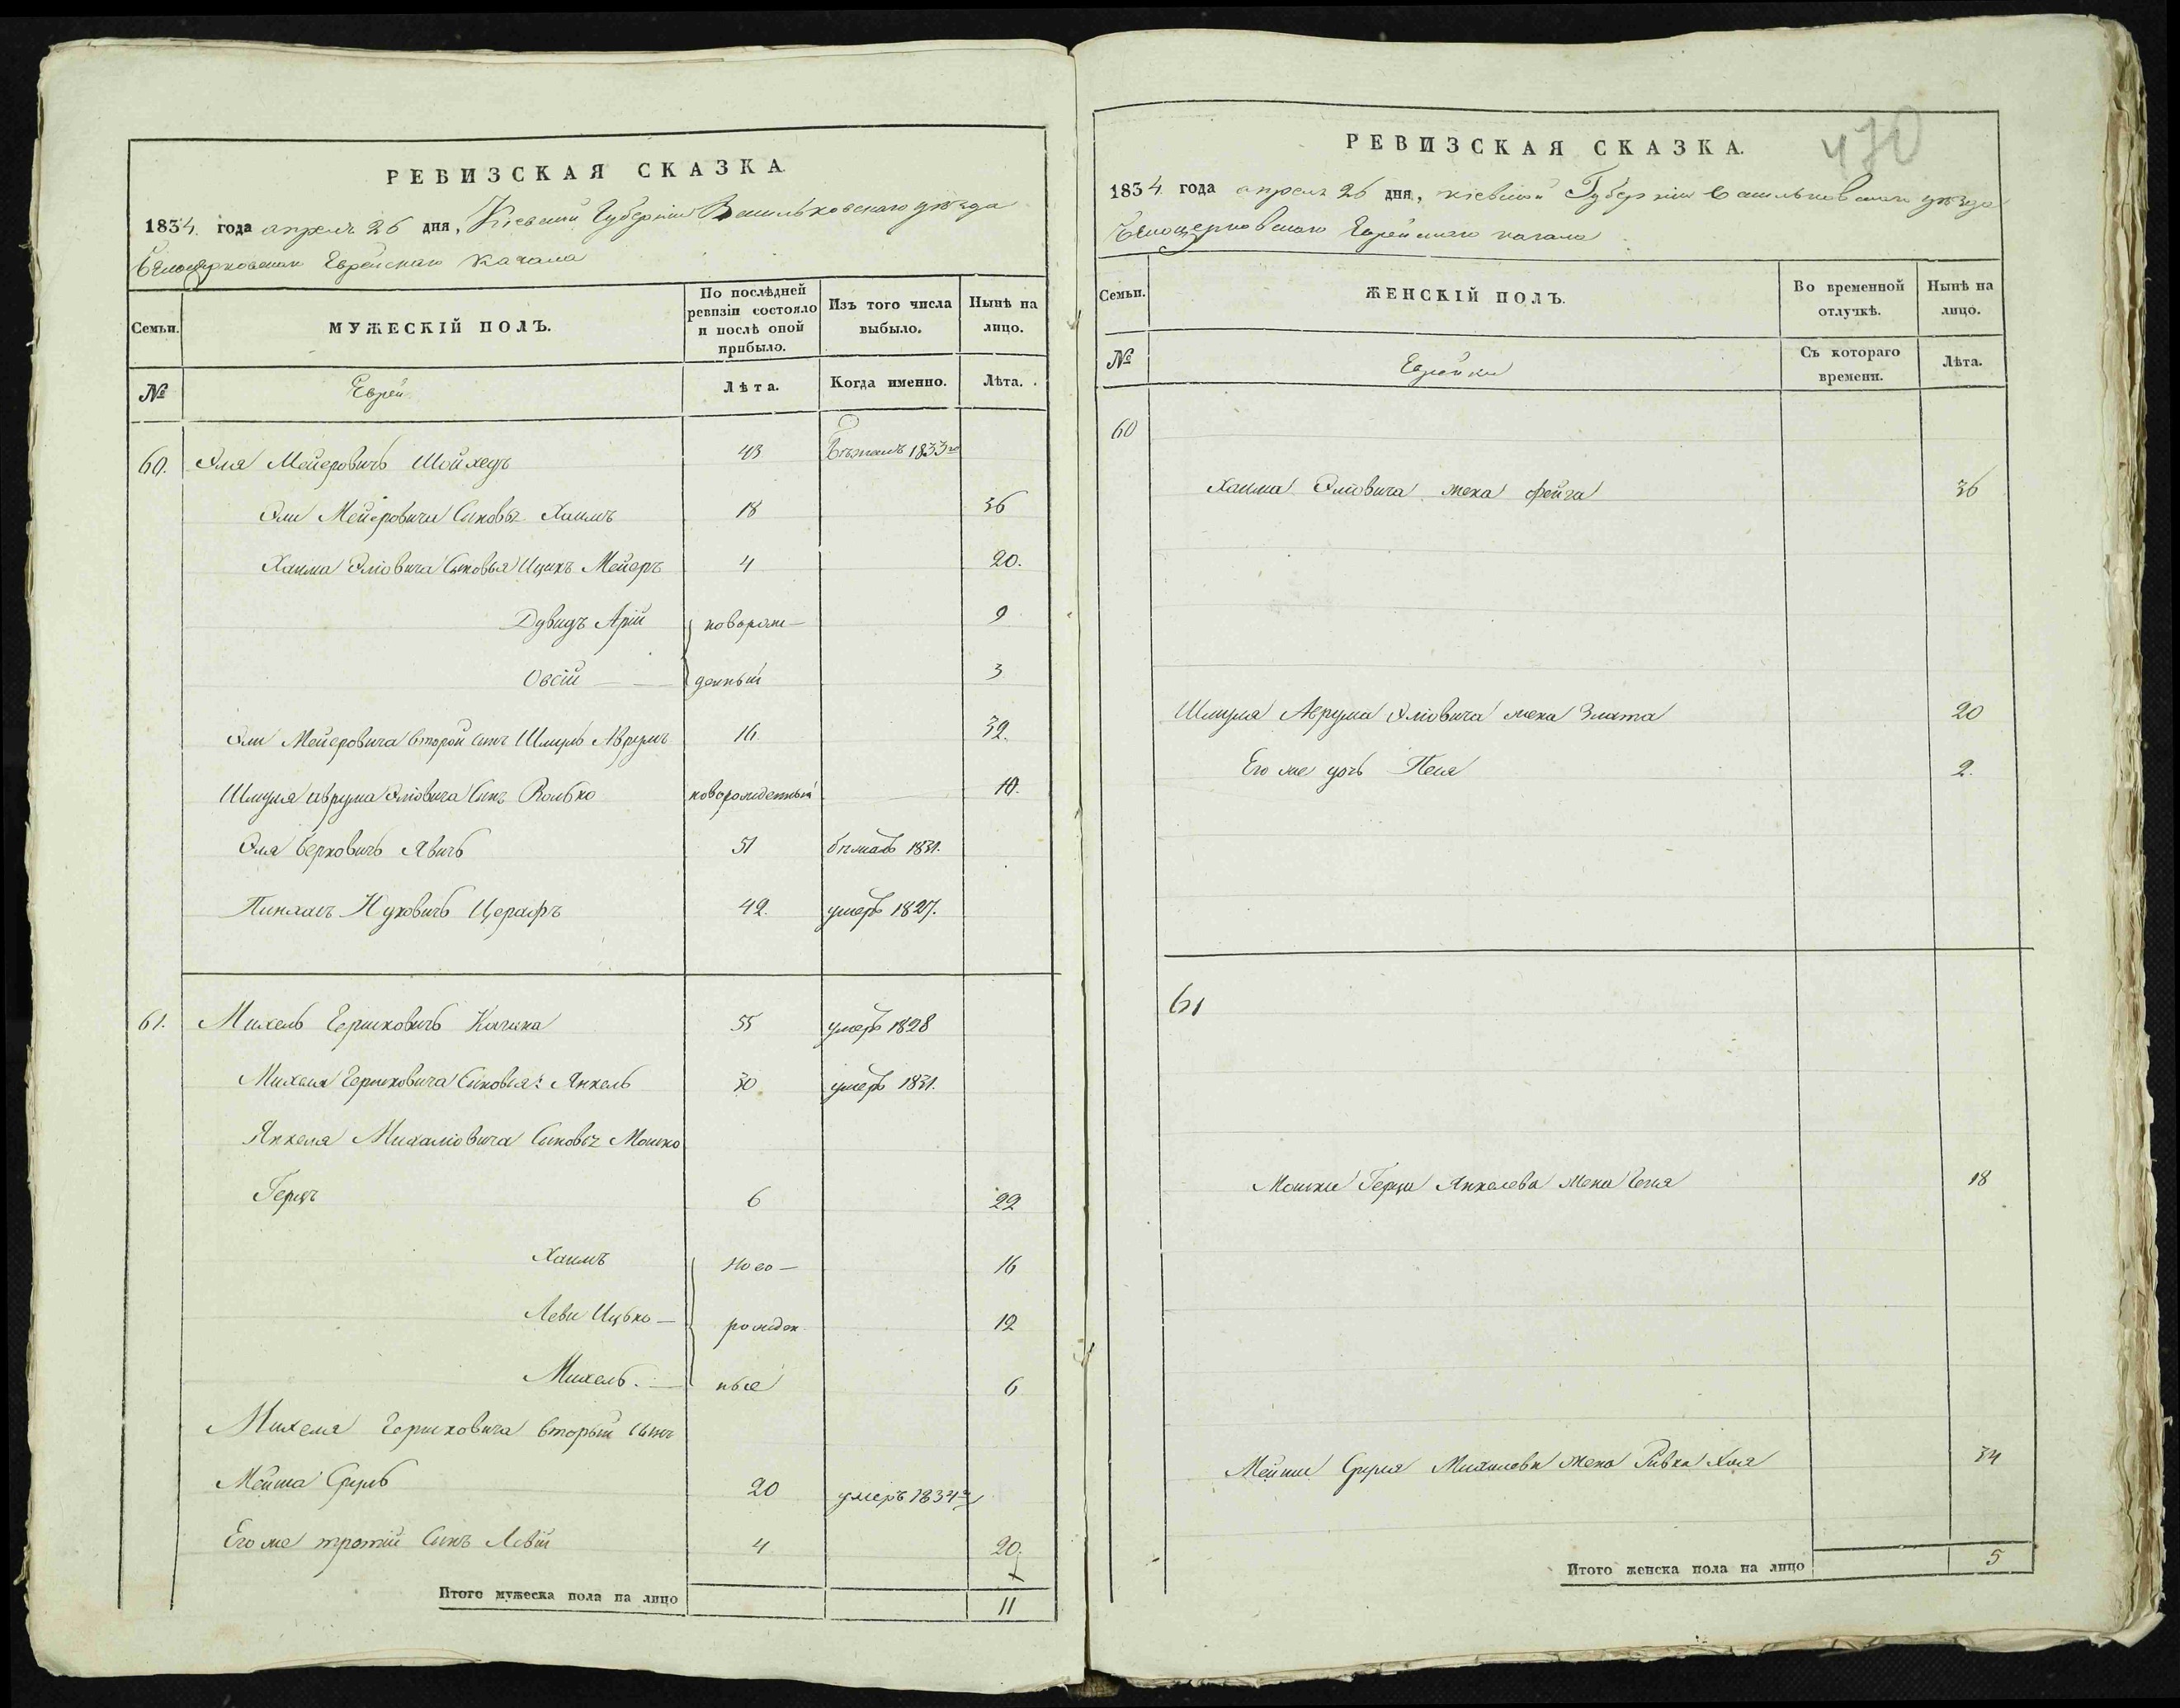 РЕВИЗСКАЯ СКАЗКА.
1834. года апреля 26 дня, Кіевской Губерніи Васильковскаго уѣзда
Бѣлоцерковскаго Еврейскаго Кагала
Семьи.
МУЖЕСКІЙ ПОЛЪ.
По послѣдней ревизіи состояло и послѣ оной прибыло.
Изъ того числа выбыло.
Нынѣ на лицо.
№
Еврей
Лѣта.
Когда именно.
Лѣта.
60. Эля Мейеровичъ Шойхедъ 43 Бѣжалъ 1833го
Эли Мейеровича Сыновья Хаимъ 18 36
Хаима Эліовича Сыновья Ицикъ Мейеръ 4 20.
Дувидъ Арій новорож- 9
Овсій денный 3
Эли Мейеровича второй сынъ Шмуль Аврумъ 16 32.
Шмуля Аврума Эліовича Сынъ Волько новорожденный 10.
Эля Берковичъ Явичъ 51 бѣжалъ 1831.
Пинхасъ Нуховичъ Церафъ 42. умеръ 1827.
61. Михель Гершковичъ Качика 55 умеръ 1828
Михеля Гершковича Сыновья: Янкель 30 умеръ 1831.
Янкеля Михаліовича Сыновья Мошко
Герцъ 6 22
Хаимъ ново- 16
Леви Ицько рожден 12
Михель. ные 6
Михеля Гершковича вторый сынъ
Мейша Сруль 20 умеръ 1834го
Его же третій Сынъ Левій 4 20.
Итого мужеска пола на лицо 11
470
РЕВИЗСКАЯ СКАЗКА.
1834. года апреля 26 дня, Кіевской Губерніи Васильковскаго уѣзда
Бѣлоцерковскаго Еврейскаго кагала
Семьи.
ЖЕНСКІЙ ПОЛЪ.
Во временной отлучкѣ.
Нынѣ на лицо.
№
Еврейки
Съ котораго времени.
Лѣта.
60
Хаима Эліовича жена Фейга 36
Шмуля Аврума Эліовича жена Злата 20
Его же дочь Песя 2.
61
Мошки Герца Янкелева жена Геня 18
Мейши Сруля Михилева жена Ривка Хая 34
Итого женска пола на лицо 5